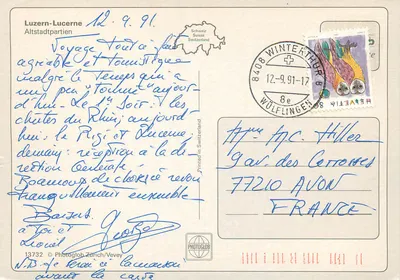 Luzern-Lucerne
Altstadtpartien
12.9.91.
Voyage tout à fait
agréable et touristique
malgré le temps qui a
un peu "tourné" aujour-
d'hui. Le 1er soir: les
chutes du Rhin; aujour-
d'hui: le Rigi et Lucerne;
demain: réception à la di-
rection Générale.
Beaucoup de choses à revoir
tranquillement ensemble.
Baisers
à toi et
Schweiz
Suisse
Switzerland
Printed in Switzerland
13732 © Photoglob Zürich/Vevey
N.B. je serai à la maison
avant la carte
PHOTOGLOB
8408 WINTERTHUR 8
12.-9.91-17
8e
WÜLFLINGEN
HELVETIA
Mme M.C. Hiller
9 av. des
77210 AVON
FRANCE